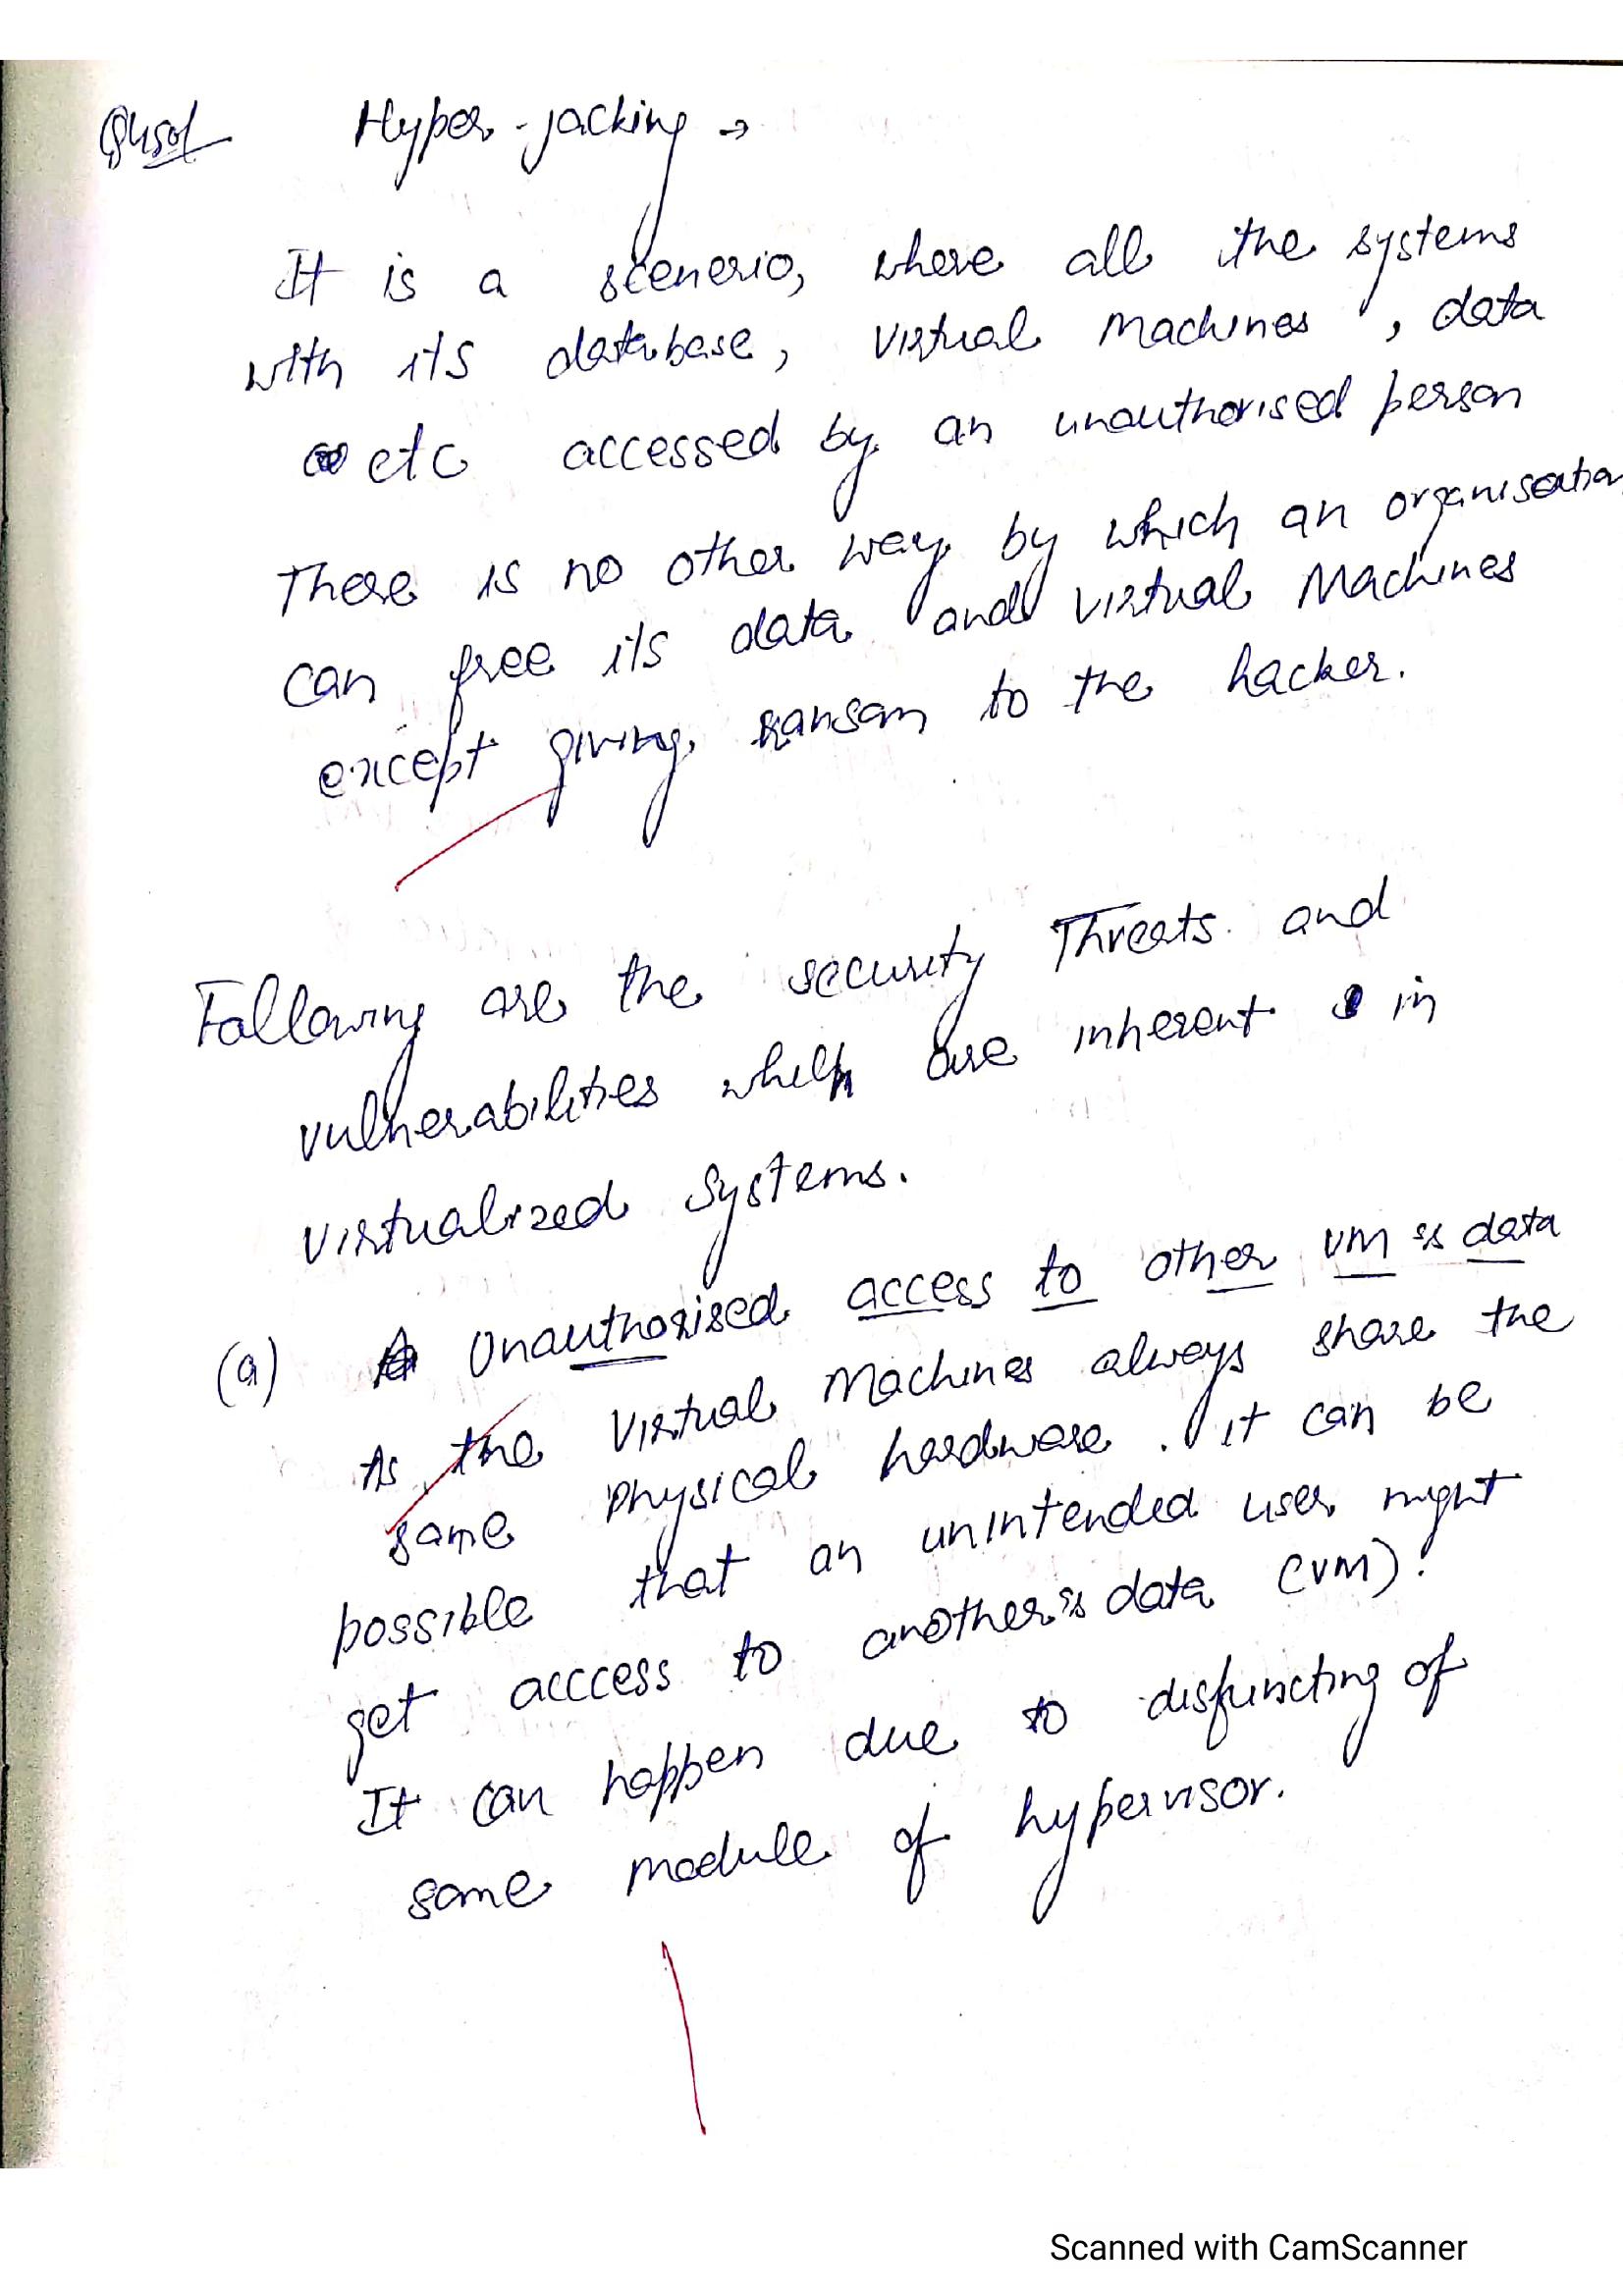 Q4sol Hyper-jacking →
It is a scenerio, where all the systems
with its database, virtual Machines, data
etc accessed by an unauthorised person
There is no other way by which an organisation
can free its data and virtual Machines
except giving ransom to the hacker.
Following are the security Threats and
vulnerabilities which are inherent in
virtualized Systems.
(a) Unauthorised access to other VM's data
As the Virtual Machines always share the
same physical hardware. it can be
possible that an unintended user might
get acccess to another's data (VM).
It can happen due to disfuncting of
some module of hypervisor.
Scanned with CamScanner